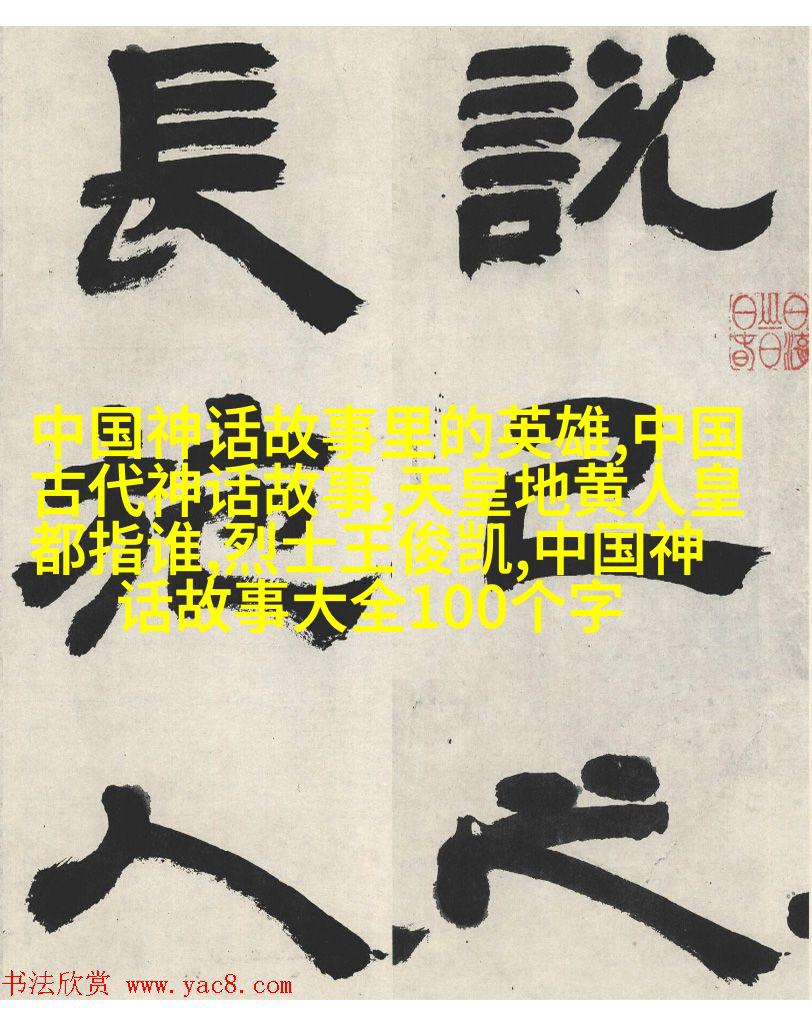 說己之
長施人
中国神话故事里的英雄,中国
古代神话故事,天皇地黄人皇
都指谁,烈士王俊凯,中国神
话故事大全100个字
书法欣赏 www.yac8.com